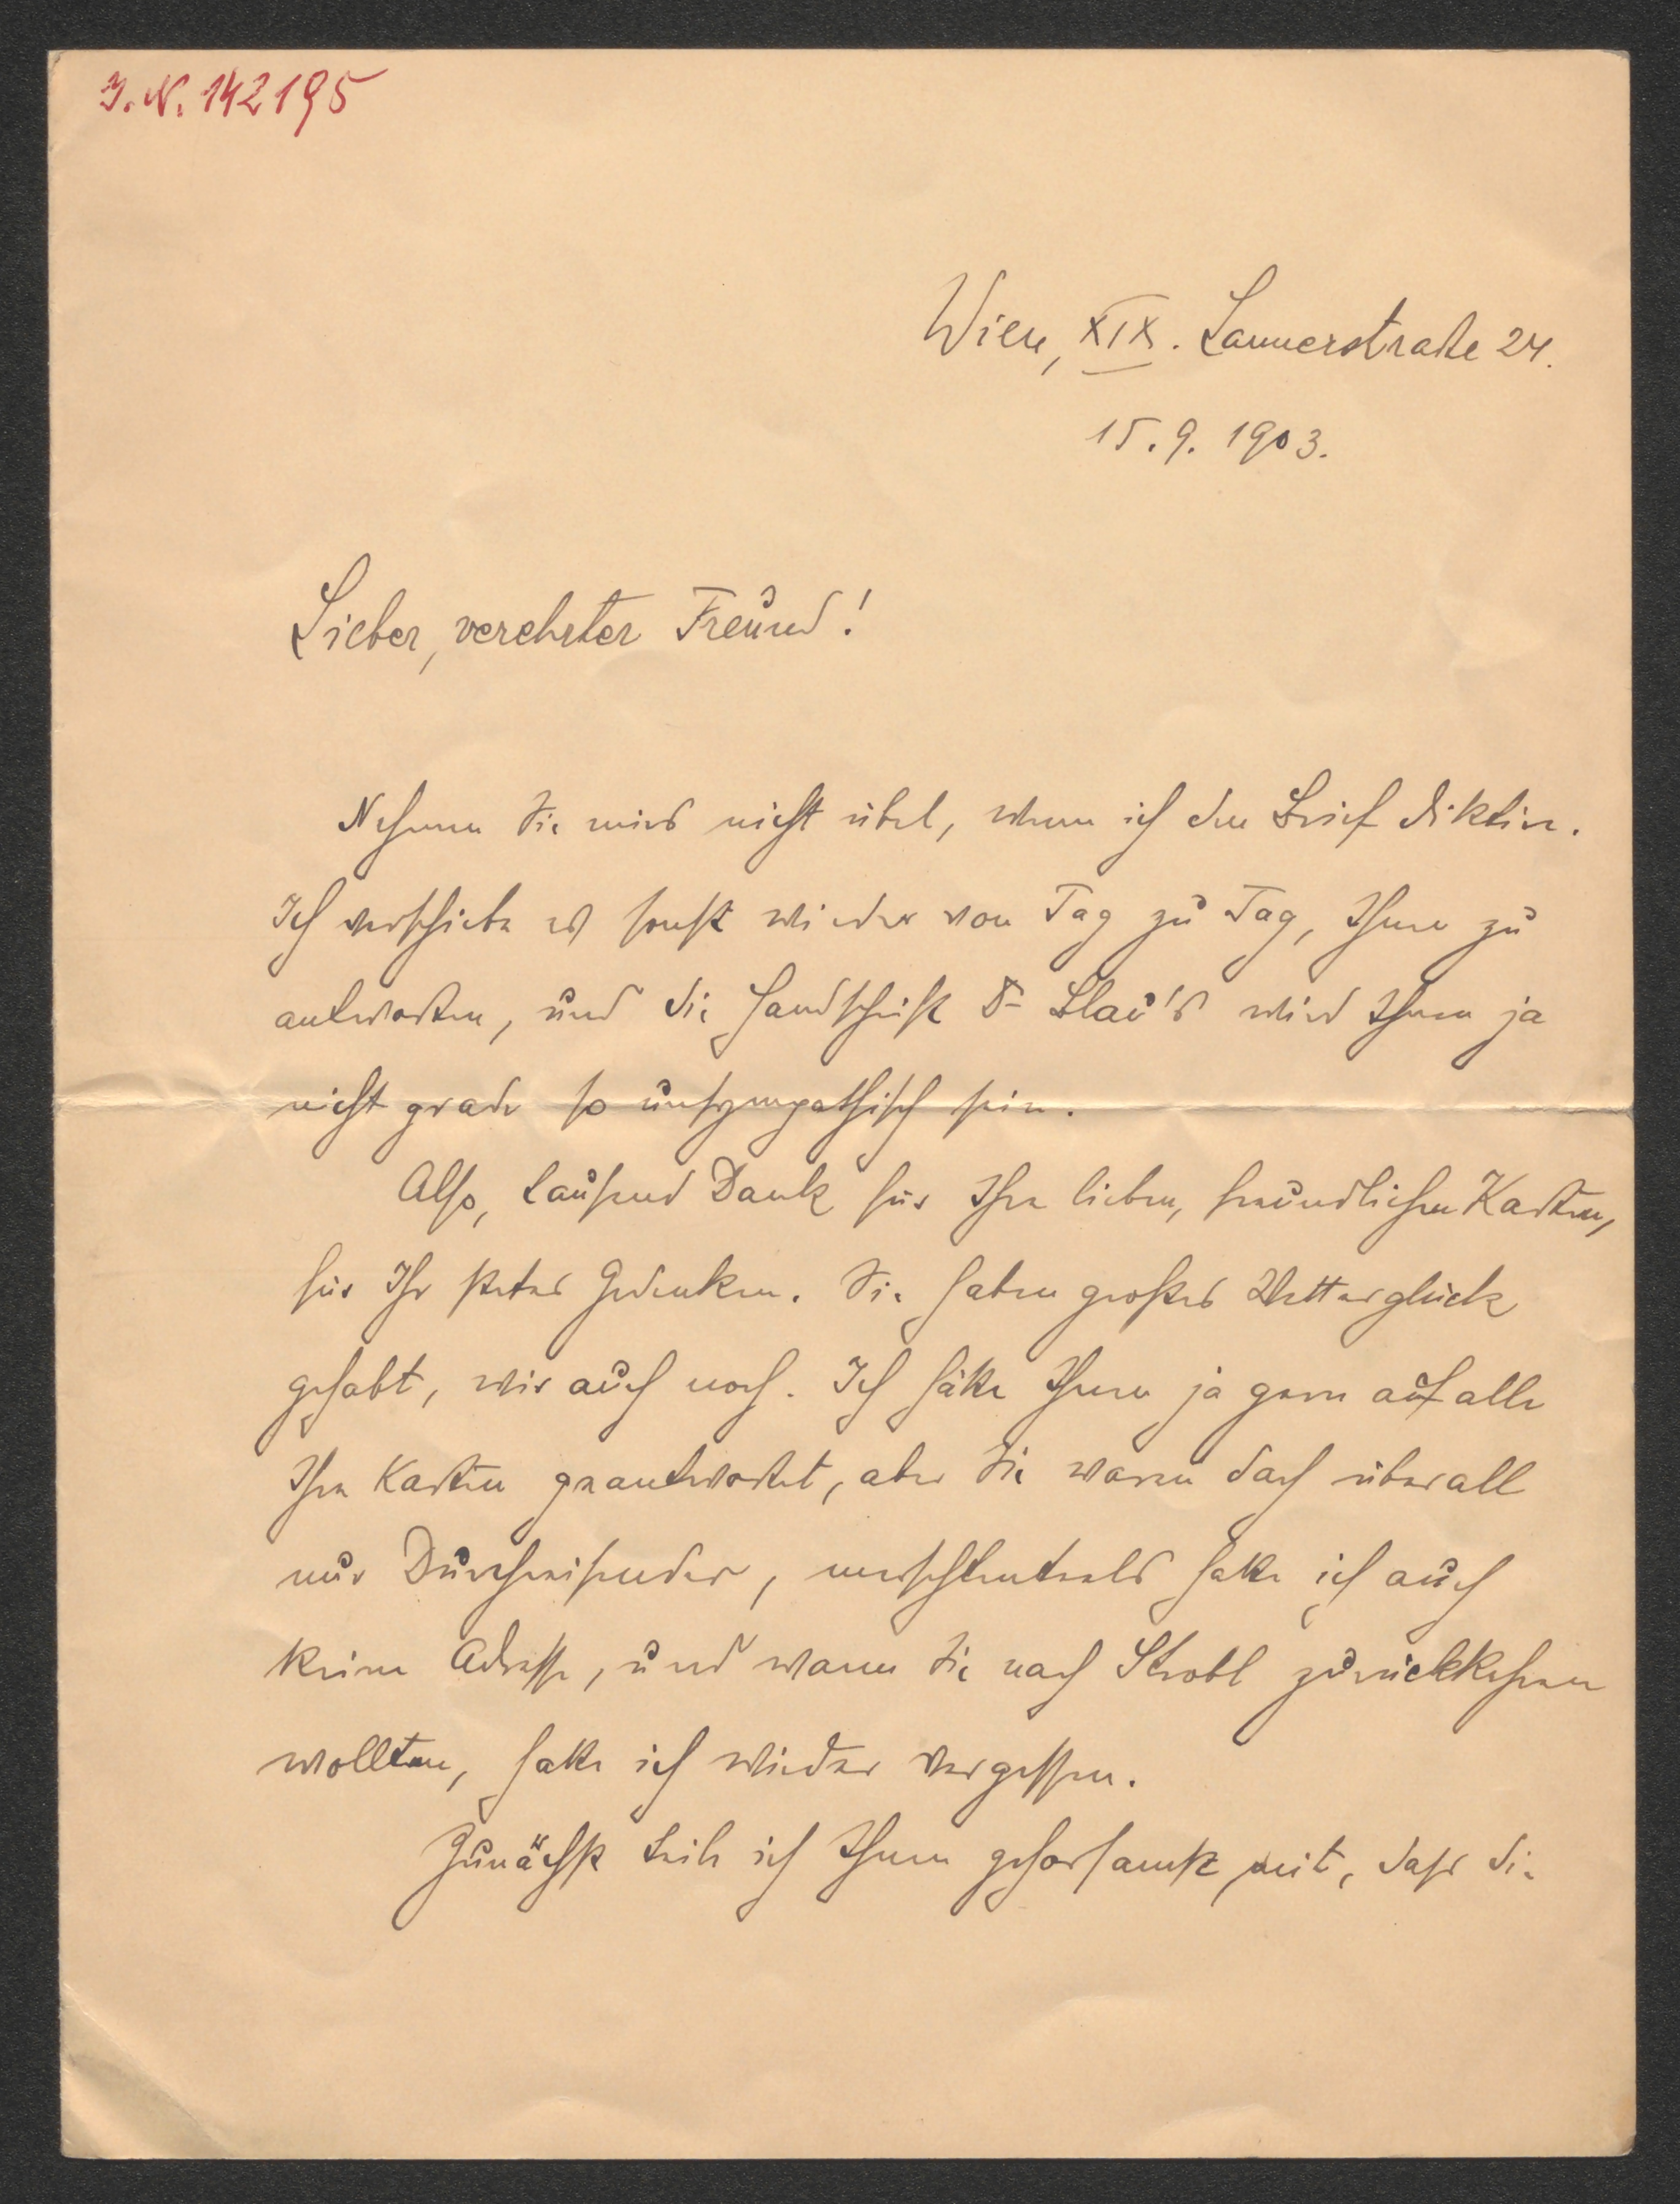 I. N. 142195
Wien, XIX. Lannerstraße 24.
15. 9. 1903.
Lieber, verehrter Freund!
Nehmen Sie mirs nicht übel, wenn ich den Brief diktire.
Ich verschiebe es sonst wieder von Tag zu Tag, Ihnen zu
antworten, und die Handschrift Dr Blau's wird Ihnen ja
nicht grade so unsympathisch sein.
Also, tausend Dank für Ihre lieben, freundlichen Karten,
für Ihr stetes Gedenken. Sie haben großes Wetterglück
gehabt, wir auch noch. Ich hätte Ihnen ja gern auf alle
Ihre Karten geantwortet, aber Sie waren doch überall
nur Durchreisender, meistenteils hatte ich auch
keine Adresse, und wann Sie nach Strobl zurückkehren
wollten, hatte ich wieder vergessen.
Zunächst teile ich Ihnen gehorsamst mit, dass die